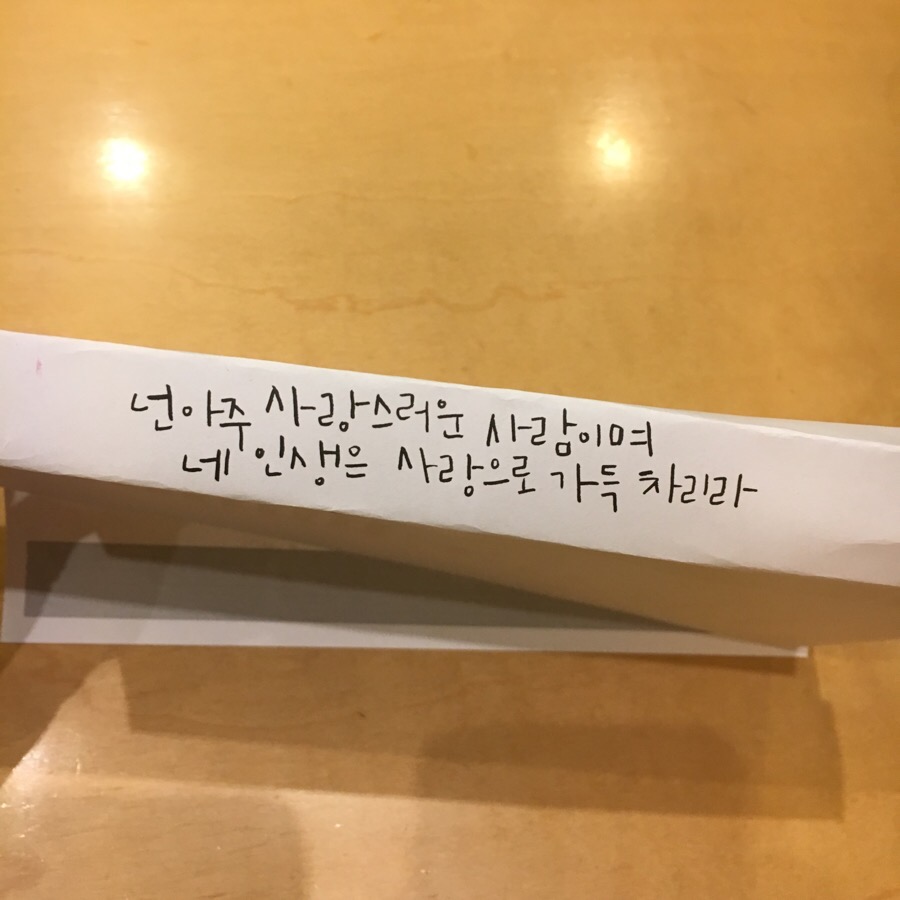 넌아주 사랑스러운 사람이며
네 인생은 사랑으로 가득 차리라